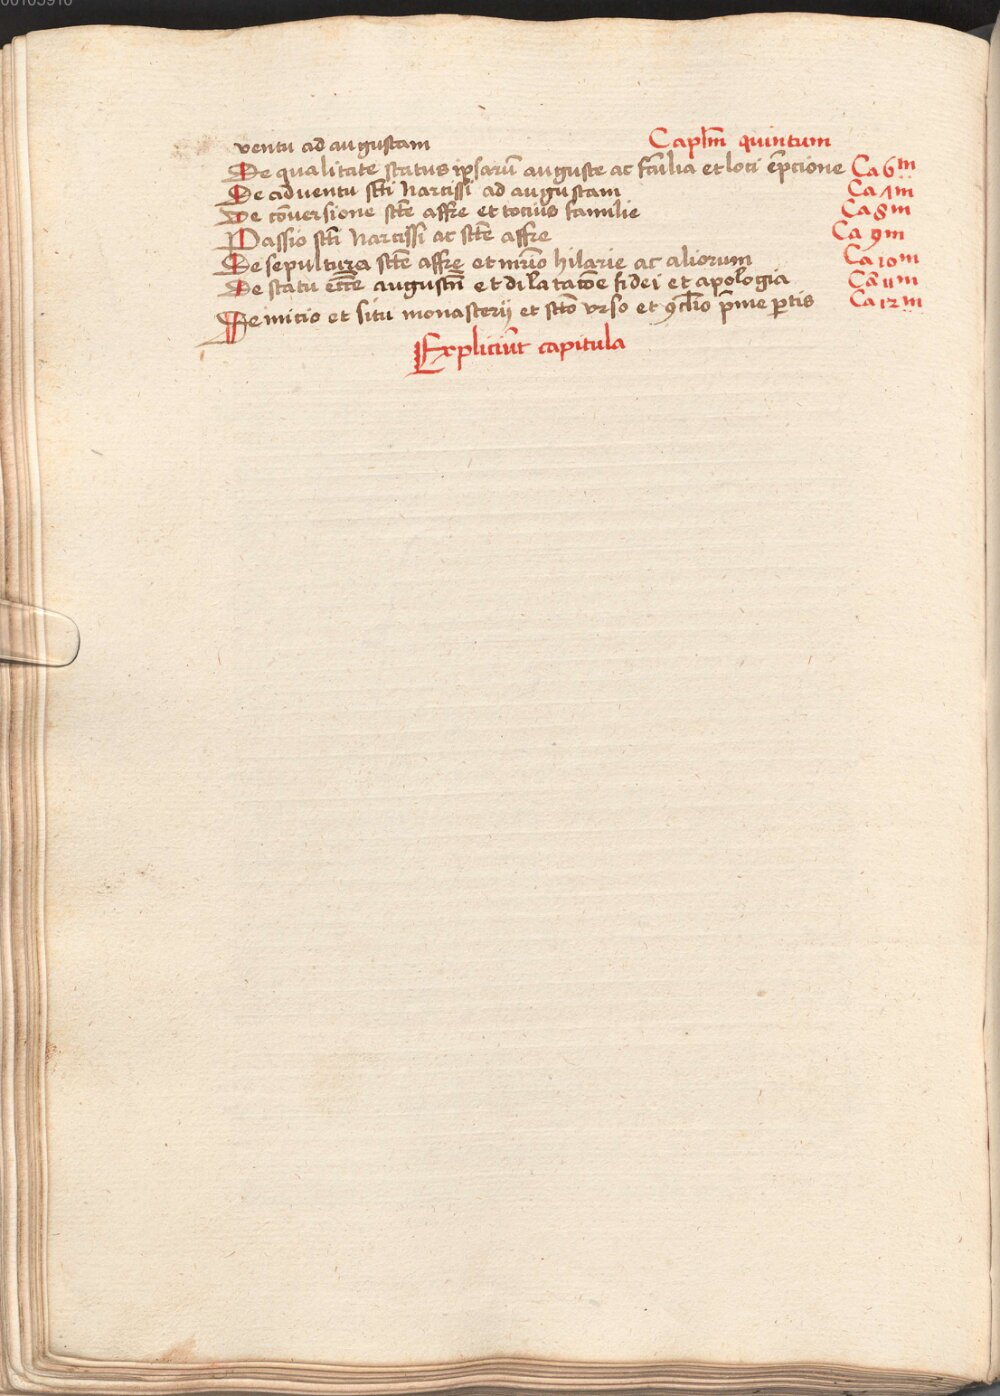 00103916
ventu ad augustam Capłm quintum
De qualitate status ipsarū auguste ac familia et loci ēpcione Ca 6m
De adventu scti Narcissi ad augustam Ca 7m
De cōversione scte affre et tocius familie Ca 8m
Passio scti Narcissi ac scte affre Ca 9m
De sepultura scte affre et mrīo hilarie ac aliorum Ca 10m
De statu eccē augustn̄ et dilatacōe fidei et apologia Ca 11m
De inicio et situ monasterij et scto vrso et ꝯclīo p̄me ꝑtis Ca 12m
Expliciūt capitula